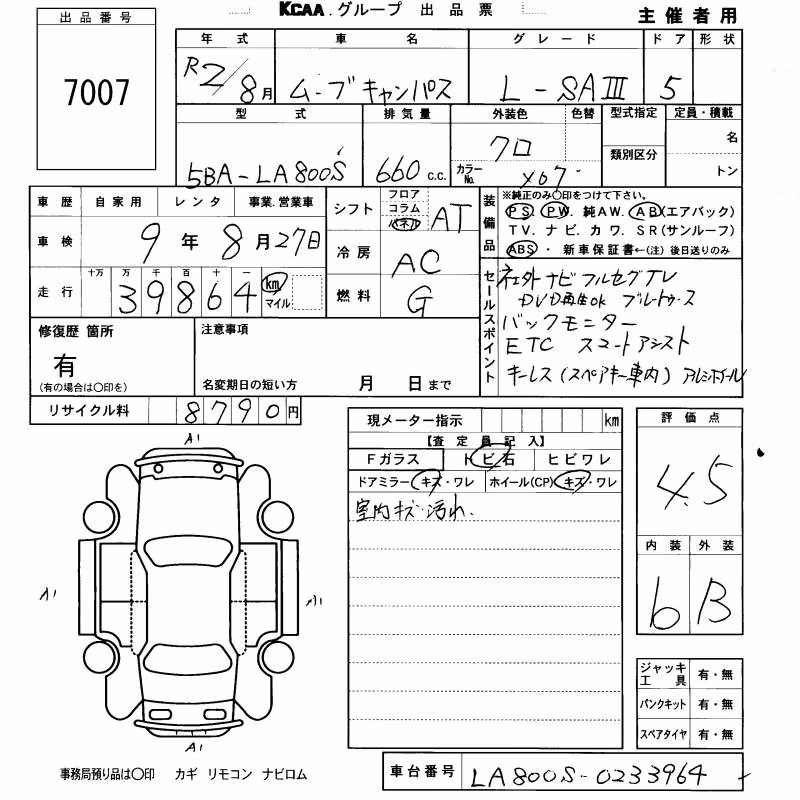 KCAA.グループ 出品票
主催者用
出品番号
7007
年式 車名 グレード ドア 形状
R2/8月 ムーブキャンバス L-SAⅢ 5
型式 排気量 外装色 色替 型式指定 定員・積載
5BA-LA800S 660c.c. クロ カラーNo. X07 類別区分 名
トン
車歴 自家用 レンタ 事業.営業車
車検 9年8月27日
走行 十万 万 千 百 十 一
39864 km マイル
シフト フロア コラム パネル AT
冷房 AC
燃料 G
装備品
※純正のみ○印をつけて下さい。
PS. PW. 純AW. AB(エアバック)
TV. ナビ. カワ. SR(サンルーフ)
ABS・ 新車保証書←(注) 後日送りのみ
セールスポイント
社外ナビ フルセグTV
DVD再生ok ブルートゥース
バックモニター
ETC スマートアシスト
キーレス(スペアキー車内) アルミホイール
修復歴 箇所
有
(有の場合は○印を)
注意事項
名変期日の短い方 月 日まで
リサイクル料 8790円
現メーター指示 km
【査定員記入】
Fガラス トビ石 ヒビワレ
ドアミラー キズ・ワレ ホイール(CP) キズ・ワレ
室内キズ・汚れ.
評価点
4.5
内装 外装
b B
ジャッキ工具 有・無
パンクキット 有・無
スペアタイヤ 有・無
A1
A1 A1
A1
事務局預り品は○印 カギ リモコン ナビロム
車台番号 LA800S-0233964